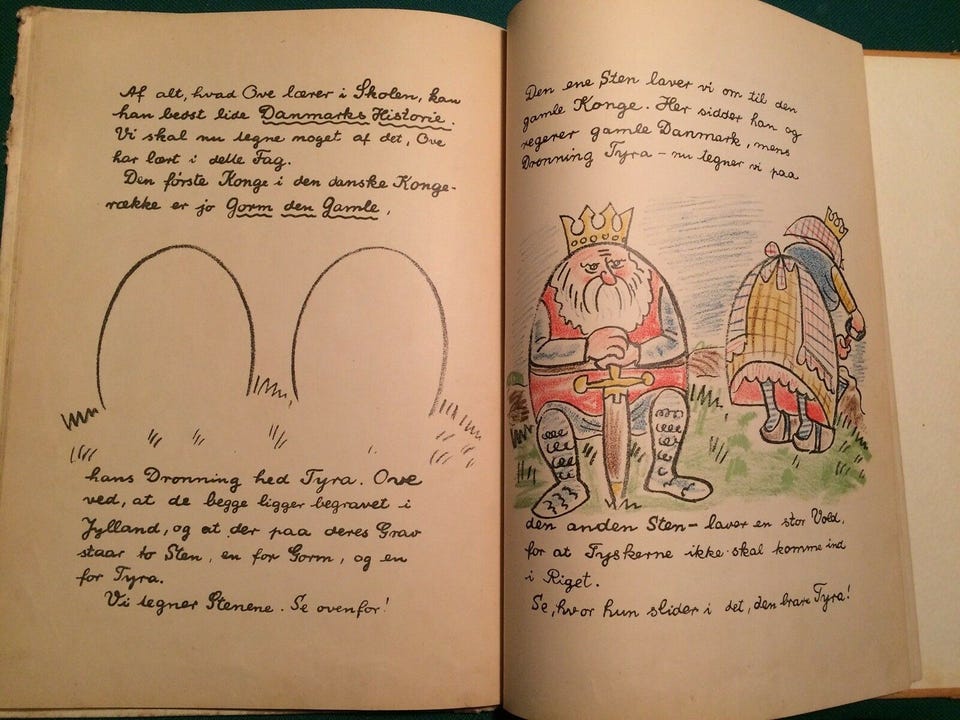 Af alt, hvad Ove lærer i Skolen, kan
han bedst lide Danmarks Historie.
Vi skal nu tegne noget af det, Ove
har lært i dette Fag.
Den første Konge i den danske Konge-
række er jo Gorm den Gamle,
hans Dronning hed Tyra. Ove
ved, at de begge ligger begravet i
Jylland, og at der paa deres Grav
staar to Sten, en for Gorm, og en
for Tyra.
Vi tegner Stenene. Se ovenfor!
Den ene Sten laver vi om til den
gamle Konge. Her sidder han og
regerer gamle Danmark, mens
Dronning Tyra – nu tegner vi paa
den anden Sten – laver en stor Vold,
for at Tyskerne ikke skal komme ind
i Riget.
Se, hvor hun slider i det, den brave Tyra!